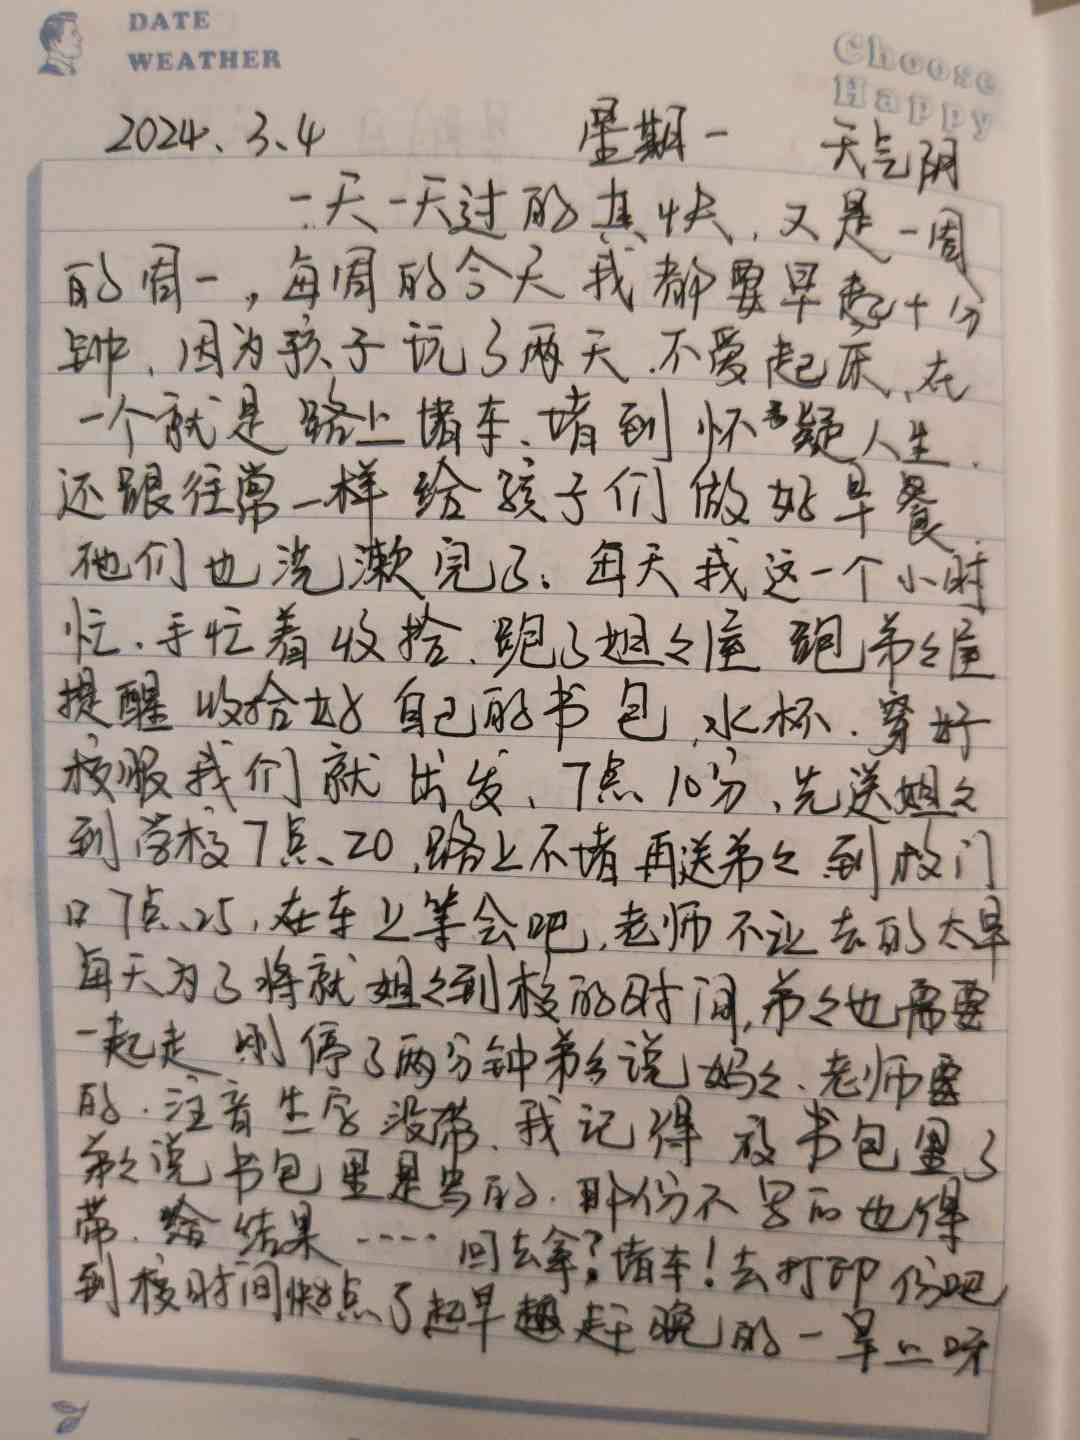 DATE
WEATHER
Choose
Happy
2024.3.4 星期一 天气阴
一天一天过的真快,又是一周
的周一,每周的今天我都要早起十分
钟,因为孩子玩了两天.不爱起床,在
一个就是路上堵车、堵到怀疑人生.
还跟往常一样给孩子们做好早餐
他们也洗漱完了。每天我这一个小时
忙、手忙着收拾.跑了姐々屋 跑弟々屋
提醒收拾好自己的书包,水杯.穿好
校服我们就出发、7点10分、先送姐々
到学校7点、20,路上不堵再送弟々到校门
口7点、25,在车上等会吧,老师不让去的太早
每天为了将就姐々到校的时间,弟々也需要
一起走 刚停了两分钟弟々说妈々、老师要
的.注音生字没带.我记得放书包里了
弟々说书包里是写的.那份不写的也得
带.结果……回去拿?堵车!去打印份吧
到校时间快到点了起早赶晚的一早上呀